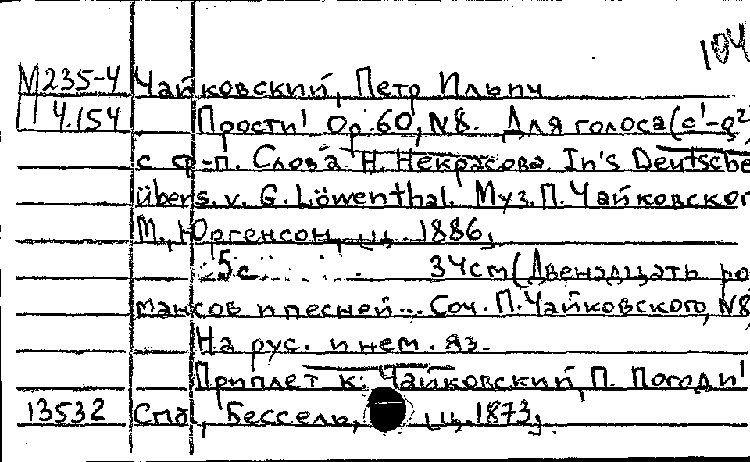 104
М235-4 Чайковский, Петр Ильич
14.154 Прости! Ор.60, N8. Для голоса (c¹-g²
с ф-п. Слова Н. Некрасова. In's Deutsche
übers. v. G. Löwenthal. Муз. П. Чайковског
М., Юргенсон, ц. 1886,
5с. 34см (Двенадцать ро
мансов и песней... Соч. П. Чайковского, N8
На рус. и нем. яз.
Приплет к: Чайковский, П. Погоди!
13532 Спб, Бессель, ц. 1873,